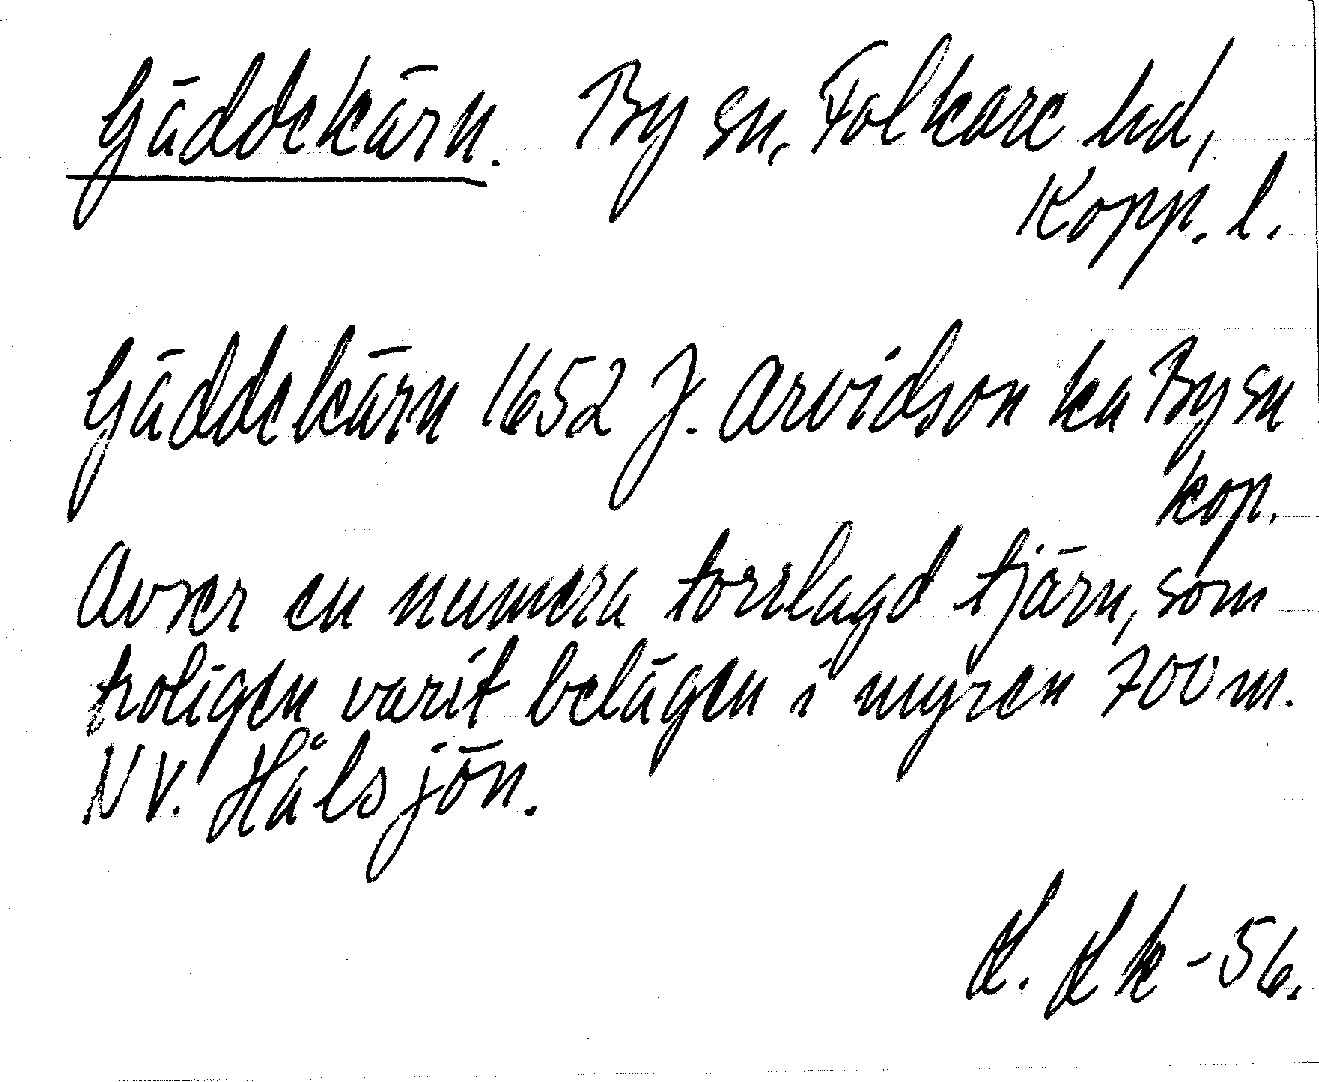 Gäddekärn. By sn, Folkare hd,
Kopp. l.
Gäddekärn 1652 J. Arvidson ka By sn
kop.
Avser en numera torrlagd tjärn, som
troligen varit belägen i myren 700 m.
NV. Hålsjön.
- 56.